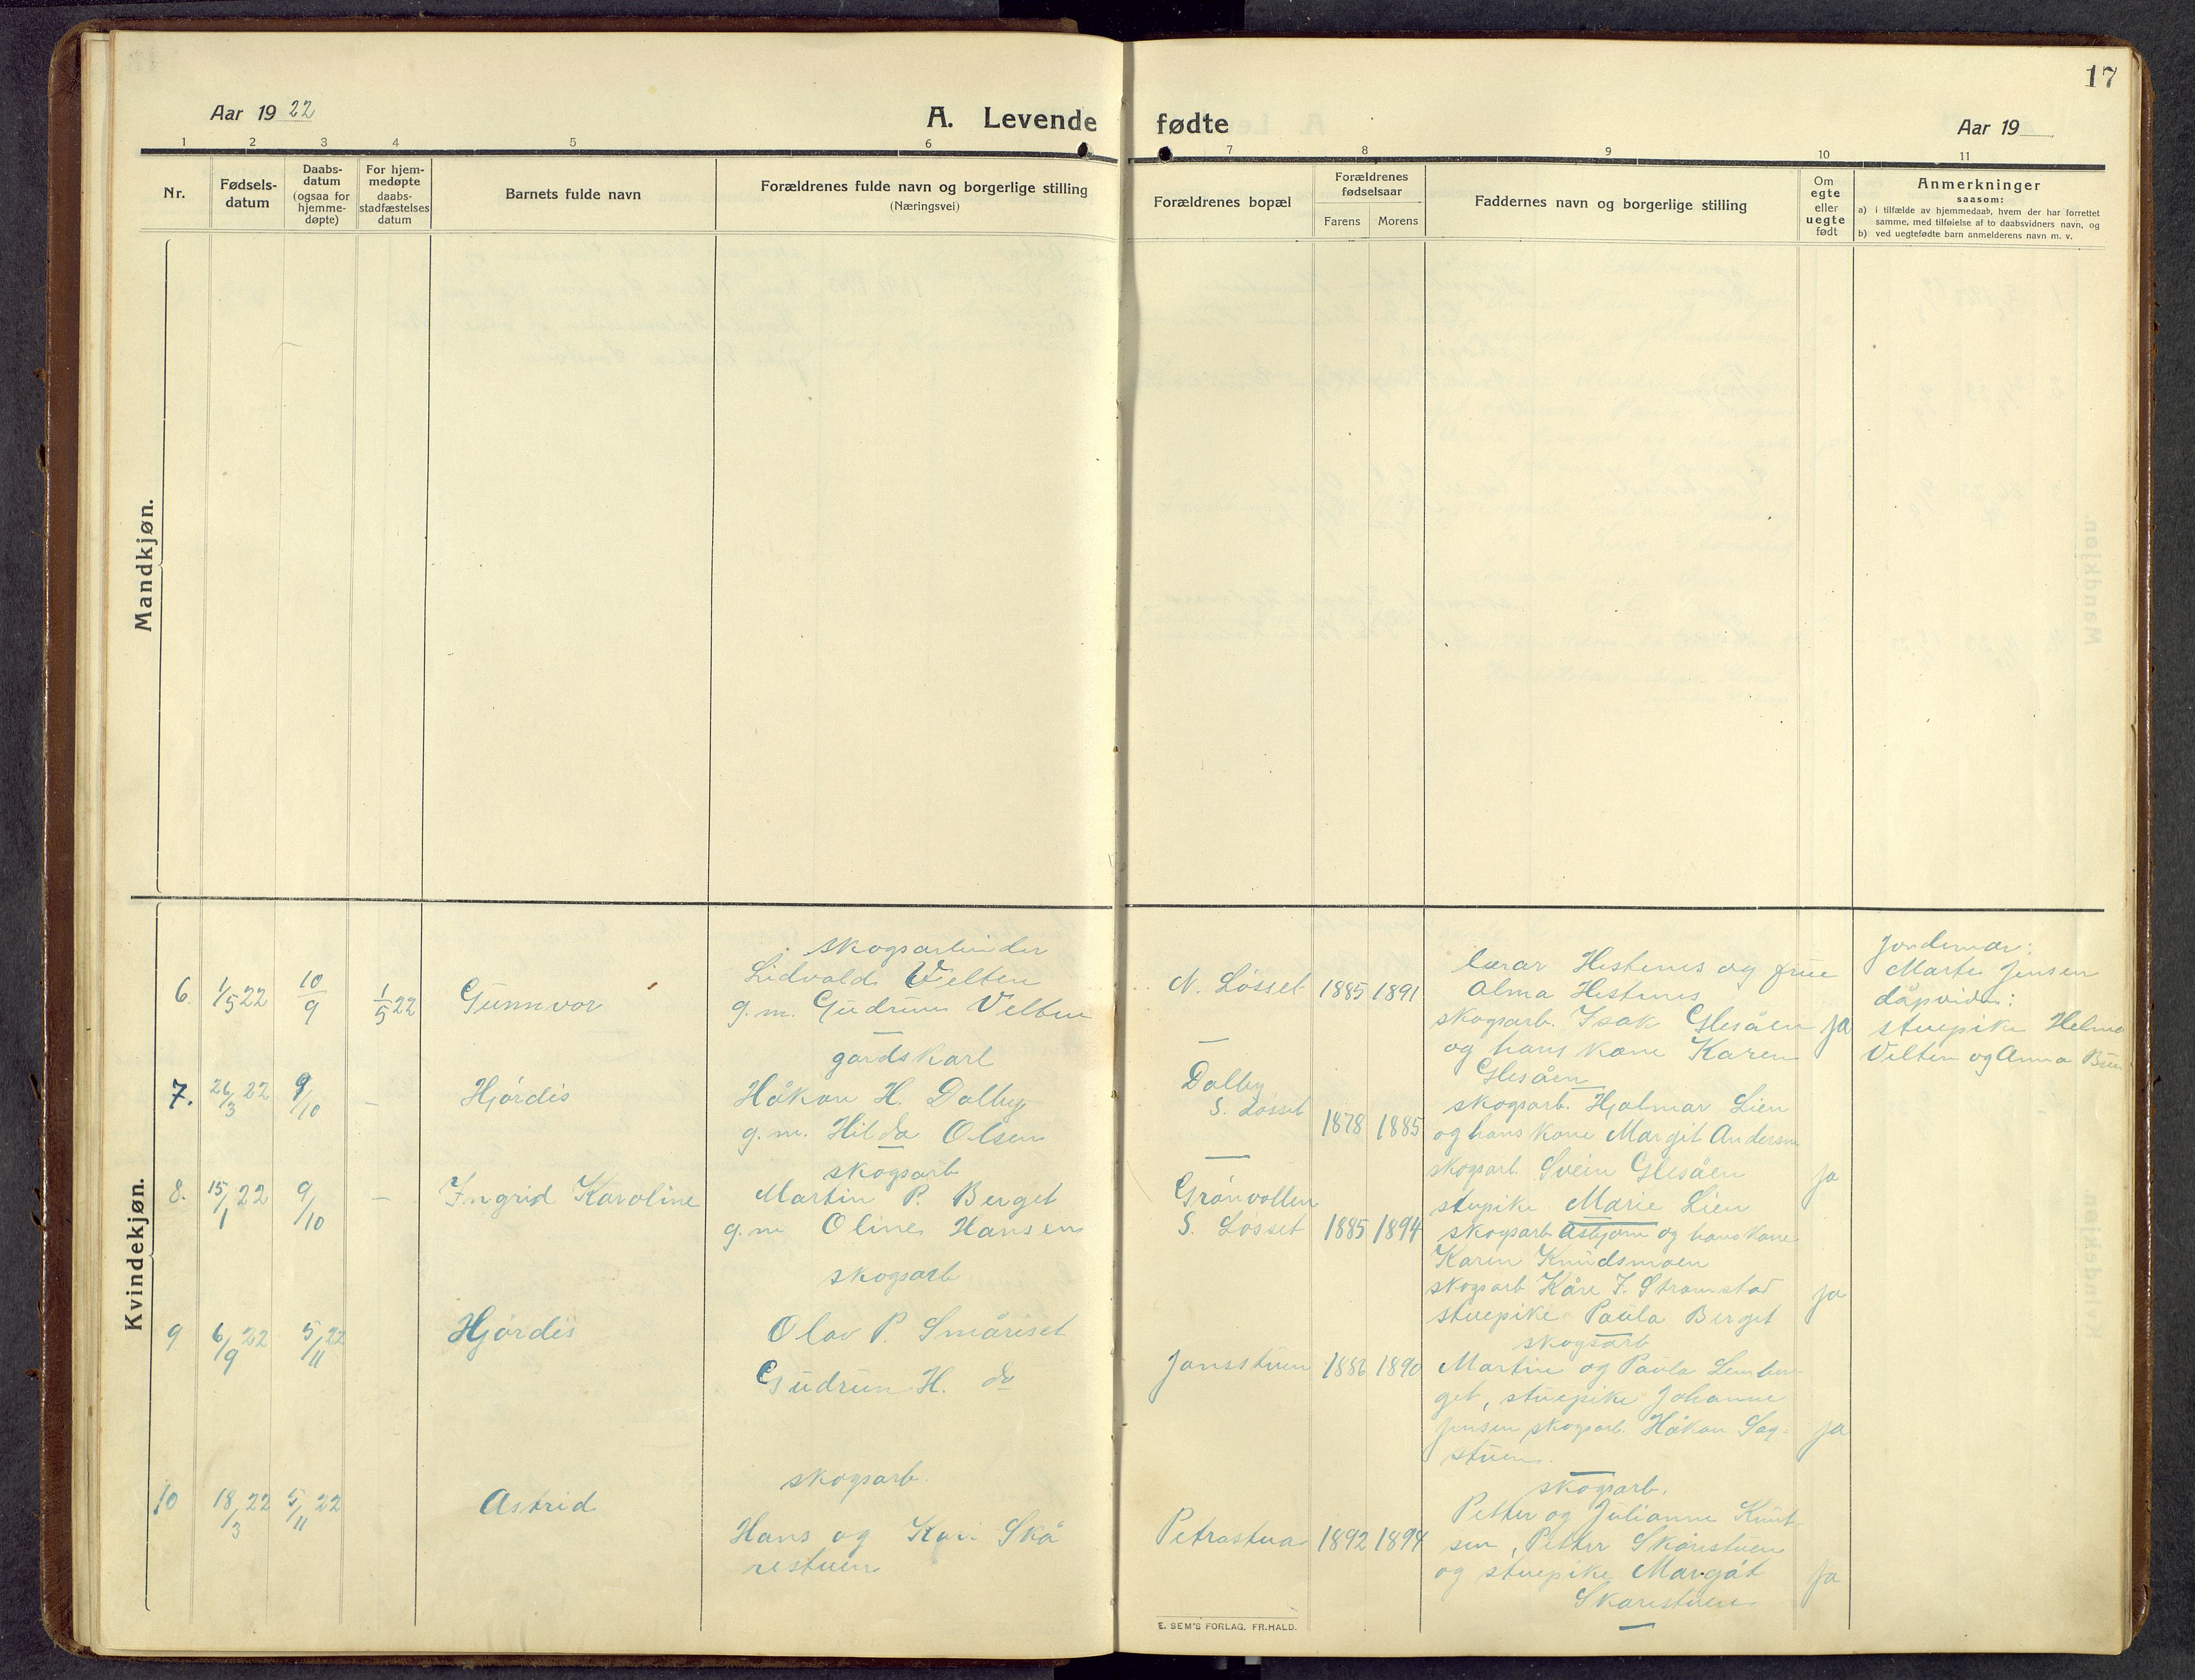 17
Aar 1922
A. Levende fødte
Aar 19
1 2 3 4 5 6 7 8 9 10 11
Nr.
Fødsels-
datum
Daabs-
datum
(ogsaa for
hjemme-
døpte)
For hjem-
medøpte
daabs-
stadfæstelses
datum
Barnets fulde navn
Forældrenes fulde navn og borgerlige stilling
(Næringsvei)
Forældrenes bopæl
Forældrenes
fødselsaar
Farens Morens
Faddernes navn og borgerlige stilling
Om
egte
eller
uegte
født
Anmerkninger
saasom:
a) i tilfælde av hjemmedaab, hvem der har forrettet
samme, med tilføielse af to daabsvidners navn, og
b) ved uegtefødte barn anmelderens navn m. v.
Mandkjøn.
Kvindekjøn.
6. 1/5 22 10/9 1/5 22 Gunnvor
skogsarbeider
Lidvald Velten
g.m. Gudrun Velten
N. Løsset 1885 1891
lærar Hestenes og frue
Alma Hestenes
skogsarb. Isak Glesåen
og hans kone Karen
Glesåen
ja
Jordmor:
Marte Jensen
dåpvidn:
stuepike Helme
Velten og Anna
7. 26/3 22 9/10 – Hjørdis
gardskarl
Håkon H. Dalby
g.m. Hilda Olsen
Dalby
S. Løsset
1878 1885
skogsarb. Hjalmar Lien
og hans kone Margit Andersen
skogsarb. Svein Glesåen
stupike Marie Lien
ja
8. 15/1 22 9/10 – Ingrid Karoline
skogsarb
Martin P. Berget
g.m Oline Hansen
Grønvollen
S. Løsset 1885 1894
skogsarb Asbjørn og hans kone
Karen Knudsmoen
skogsarb Kåre J. Strømstad
stuepike Paula Berget
ja
9 6/9 22 5/11 22 Hjørdis
skogsarb
Olav P. Småriset
Gudrun H. do
Jansstuen 1886 1890
skogsarb
Martin og Paula Lember-
get, stuepike Johanne
Jensen skogsarb. Håkon Sag-
stuen.
ja
10 18/3 22 5/11 22 Astrid
skogsarb.
Hans og Kari Skå
restuen
Petrastua 1892 1894
skogsarb.
Petter og Julianne Knut-
sen, Petter Skårestuen
og stuepike Margot
Skarestuen
ja
E. SEM'S FORLAG, FR.HALD.